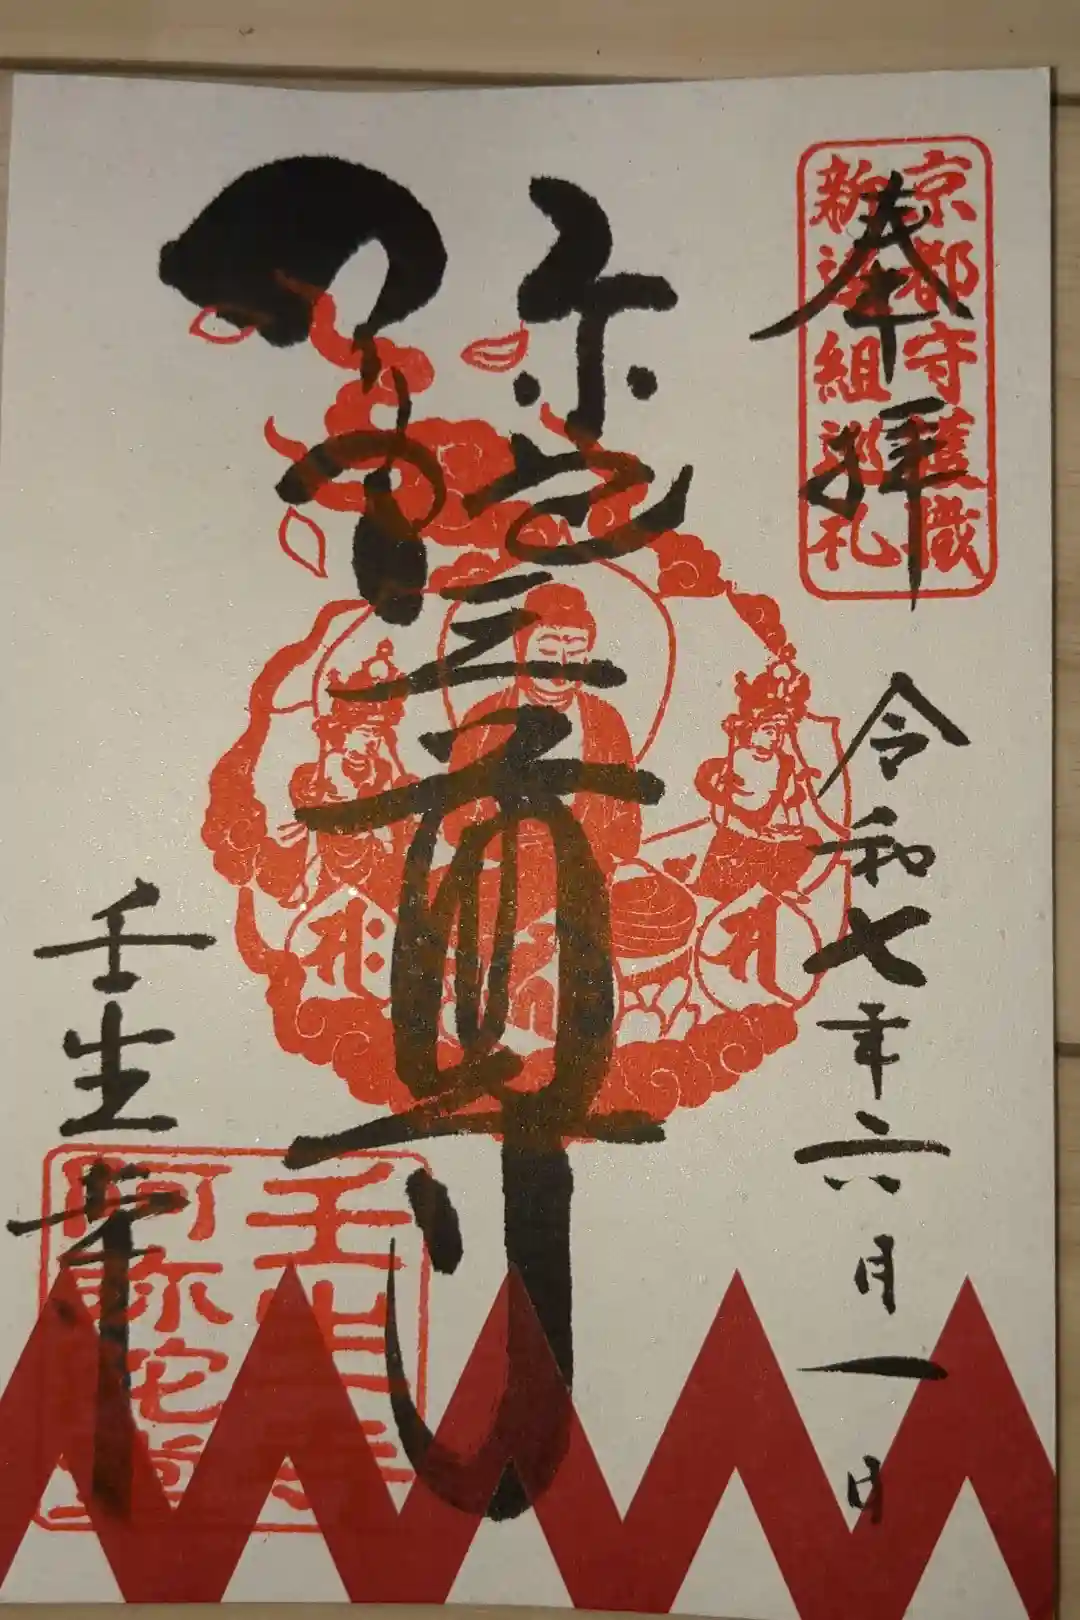 京都守護職
新選組巡礼
奉拝
令和七年六月一日
阿弥陀三尊
壬生寺
壬生寺
阿弥陀堂